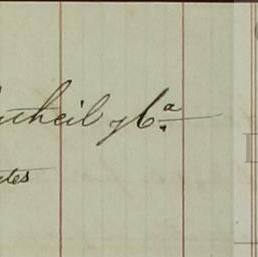 utheil y Cª
tes